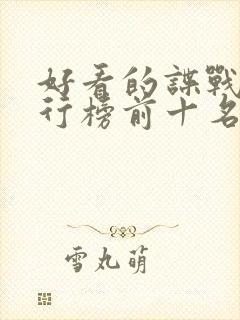 好看的諜戰
行榜前十名
雪丸萌